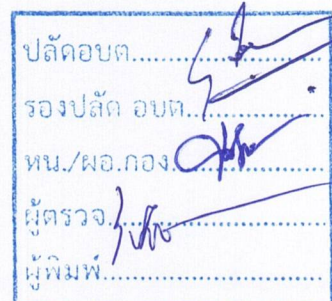 ปลัดอบต..................
รองปลัด อบต.............
หน./ผอ.กอง..............
ผู้ตรวจ...................
ผู้พิมพ์...................